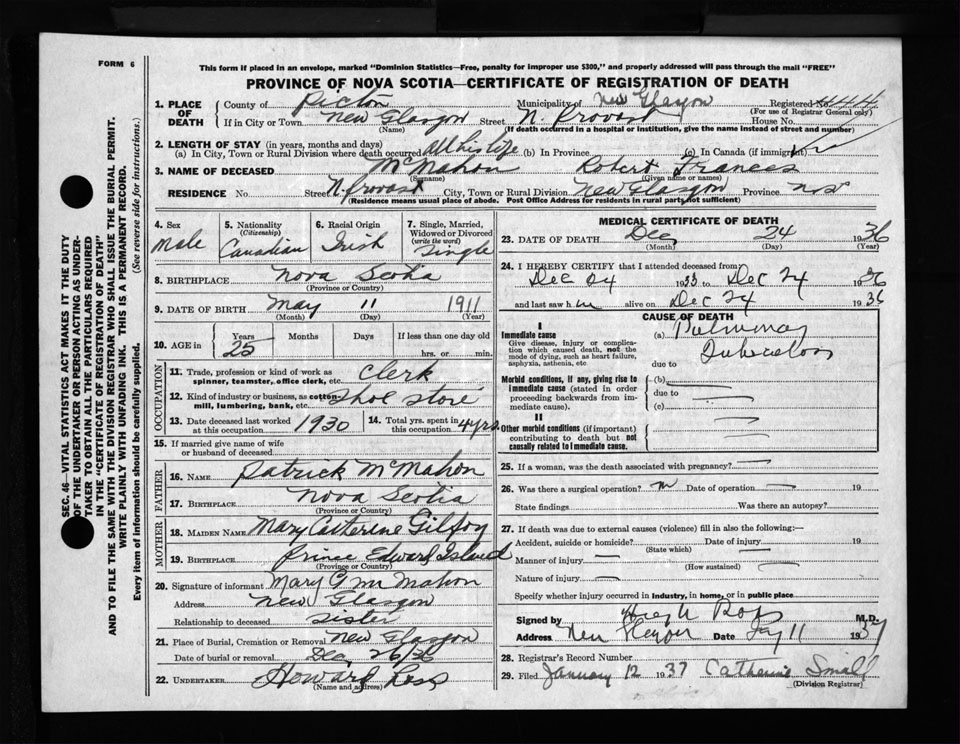 FORM 6
This form if placed in an envelope, marked "Dominion Statistics—Free, penalty for improper use $300," and properly addressed will pass through the mail "FREE"
PROVINCE OF NOVA SCOTIA—CERTIFICATE OF REGISTRATION OF DEATH
SEC. 46—VITAL STATISTICS ACT MAKES IT THE DUTY
OF THE UNDERTAKER OR PERSON ACTING AS UNDER-
TAKER TO OBTAIN ALL THE PARTICULARS REQUIRED
IN THE "CERTIFICATE OF REGISTRATION OF DEATH"
AND TO FILE THE SAME WITH THE DIVISION REGISTRAR WHO SHALL ISSUE THE BURIAL PERMIT.
WRITE PLAINLY WITH UNFADING INK. THIS IS A PERMANENT RECORD.
Every item of information should be carefully supplied. (See reverse side for instructions.)
1. PLACE OF DEATH
County of Pictou Municipality of New Glasgow Registered No.
(For use of Registrar General only)
If in City or Town New Glasgow Street N. Provost House No.
(Name) (If death occurred in a hospital or institution, give the name instead of street and number)
2. LENGTH OF STAY (in years, months and days)
(a) In City, Town or Rural Division where death occurred All his life (b) In Province (c) In Canada (if immigrant)
3. NAME OF DECEASED McMahon Robert Frances
(Surname) (Given name or names)
RESIDENCE No. Street N. Provost City, Town or Rural Division New Glasgow Province N.S.
(Residence means usual place of abode. Post Office Address for residents in rural parts not sufficient)
4. Sex Male
5. Nationality (Citizenship) Canadian
6. Racial Origin Irish
7. Single, Married, Widowed or Divorced (write the word) Single
8. BIRTHPLACE Nova Scotia
(Province or Country)
9. DATE OF BIRTH May 11 1911
(Month) (Day) (Year)
10. AGE in Years 25 Months Days If less than one day old
hrs. or min.
OCCUPATION
11. Trade, profession or kind of work as spinner, teamster, office clerk, etc. Clerk
12. Kind of industry or business, as cotton-mill, lumbering, bank, etc. Shoe store
13. Date deceased last worked at this occupation 1930
14. Total yrs. spent in this occupation 4 yrs.
15. If married give name of wife or husband of deceased
FATHER
16. NAME Patrick McMahon
17. BIRTHPLACE Nova Scotia
(Province or Country)
MOTHER
18. MAIDEN NAME Mary Catherine Gilfoy
19. BIRTHPLACE Prince Edward Island
(Province or Country)
20. Signature of informant Mary C McMahon
Address New Glasgow
Relationship to deceased Sister
21. Place of Burial, Cremation or Removal New Glasgow
Date of burial or removal Dec 26/36
22. UNDERTAKER Howard Ross
(Name and address)
MEDICAL CERTIFICATE OF DEATH
23. DATE OF DEATH Dec 24 1936
(Month) (Day) (Year)
24. I HEREBY CERTIFY that I attended deceased from
Dec 24 1933 to Dec 24 1936
and last saw him alive on Dec 24 1936
CAUSE OF DEATH
I
Immediate cause
Give disease, injury or complication which caused death, not the mode of dying, such as heart failure, asphyxia, asthenia, etc.
(a) Pulmonary
Tuberculosis
due to
Morbid conditions, if any, giving rise to immediate cause (stated in order proceeding backwards from immediate cause).
(b)
due to
(c)
II
Other morbid conditions (if important) contributing to death but not causally related to immediate cause.
25. If a woman, was the death associated with pregnancy?
26. Was there a surgical operation? no Date of operation 19
State findings Was there an autopsy?
27. If death was due to external causes (violence) fill in also the following:—
Accident, suicide or homicide? Date of injury 19
(State which)
Manner of injury
(How sustained)
Nature of injury
Specify whether injury occurred in industry, in home, or in public place
Signed by Hugh Ross M.D.
Address New Glasgow Date Jany 11 1937
28. Registrar's Record Number
29. Filed January 12 1937 Catherine Small
(Division Registrar)